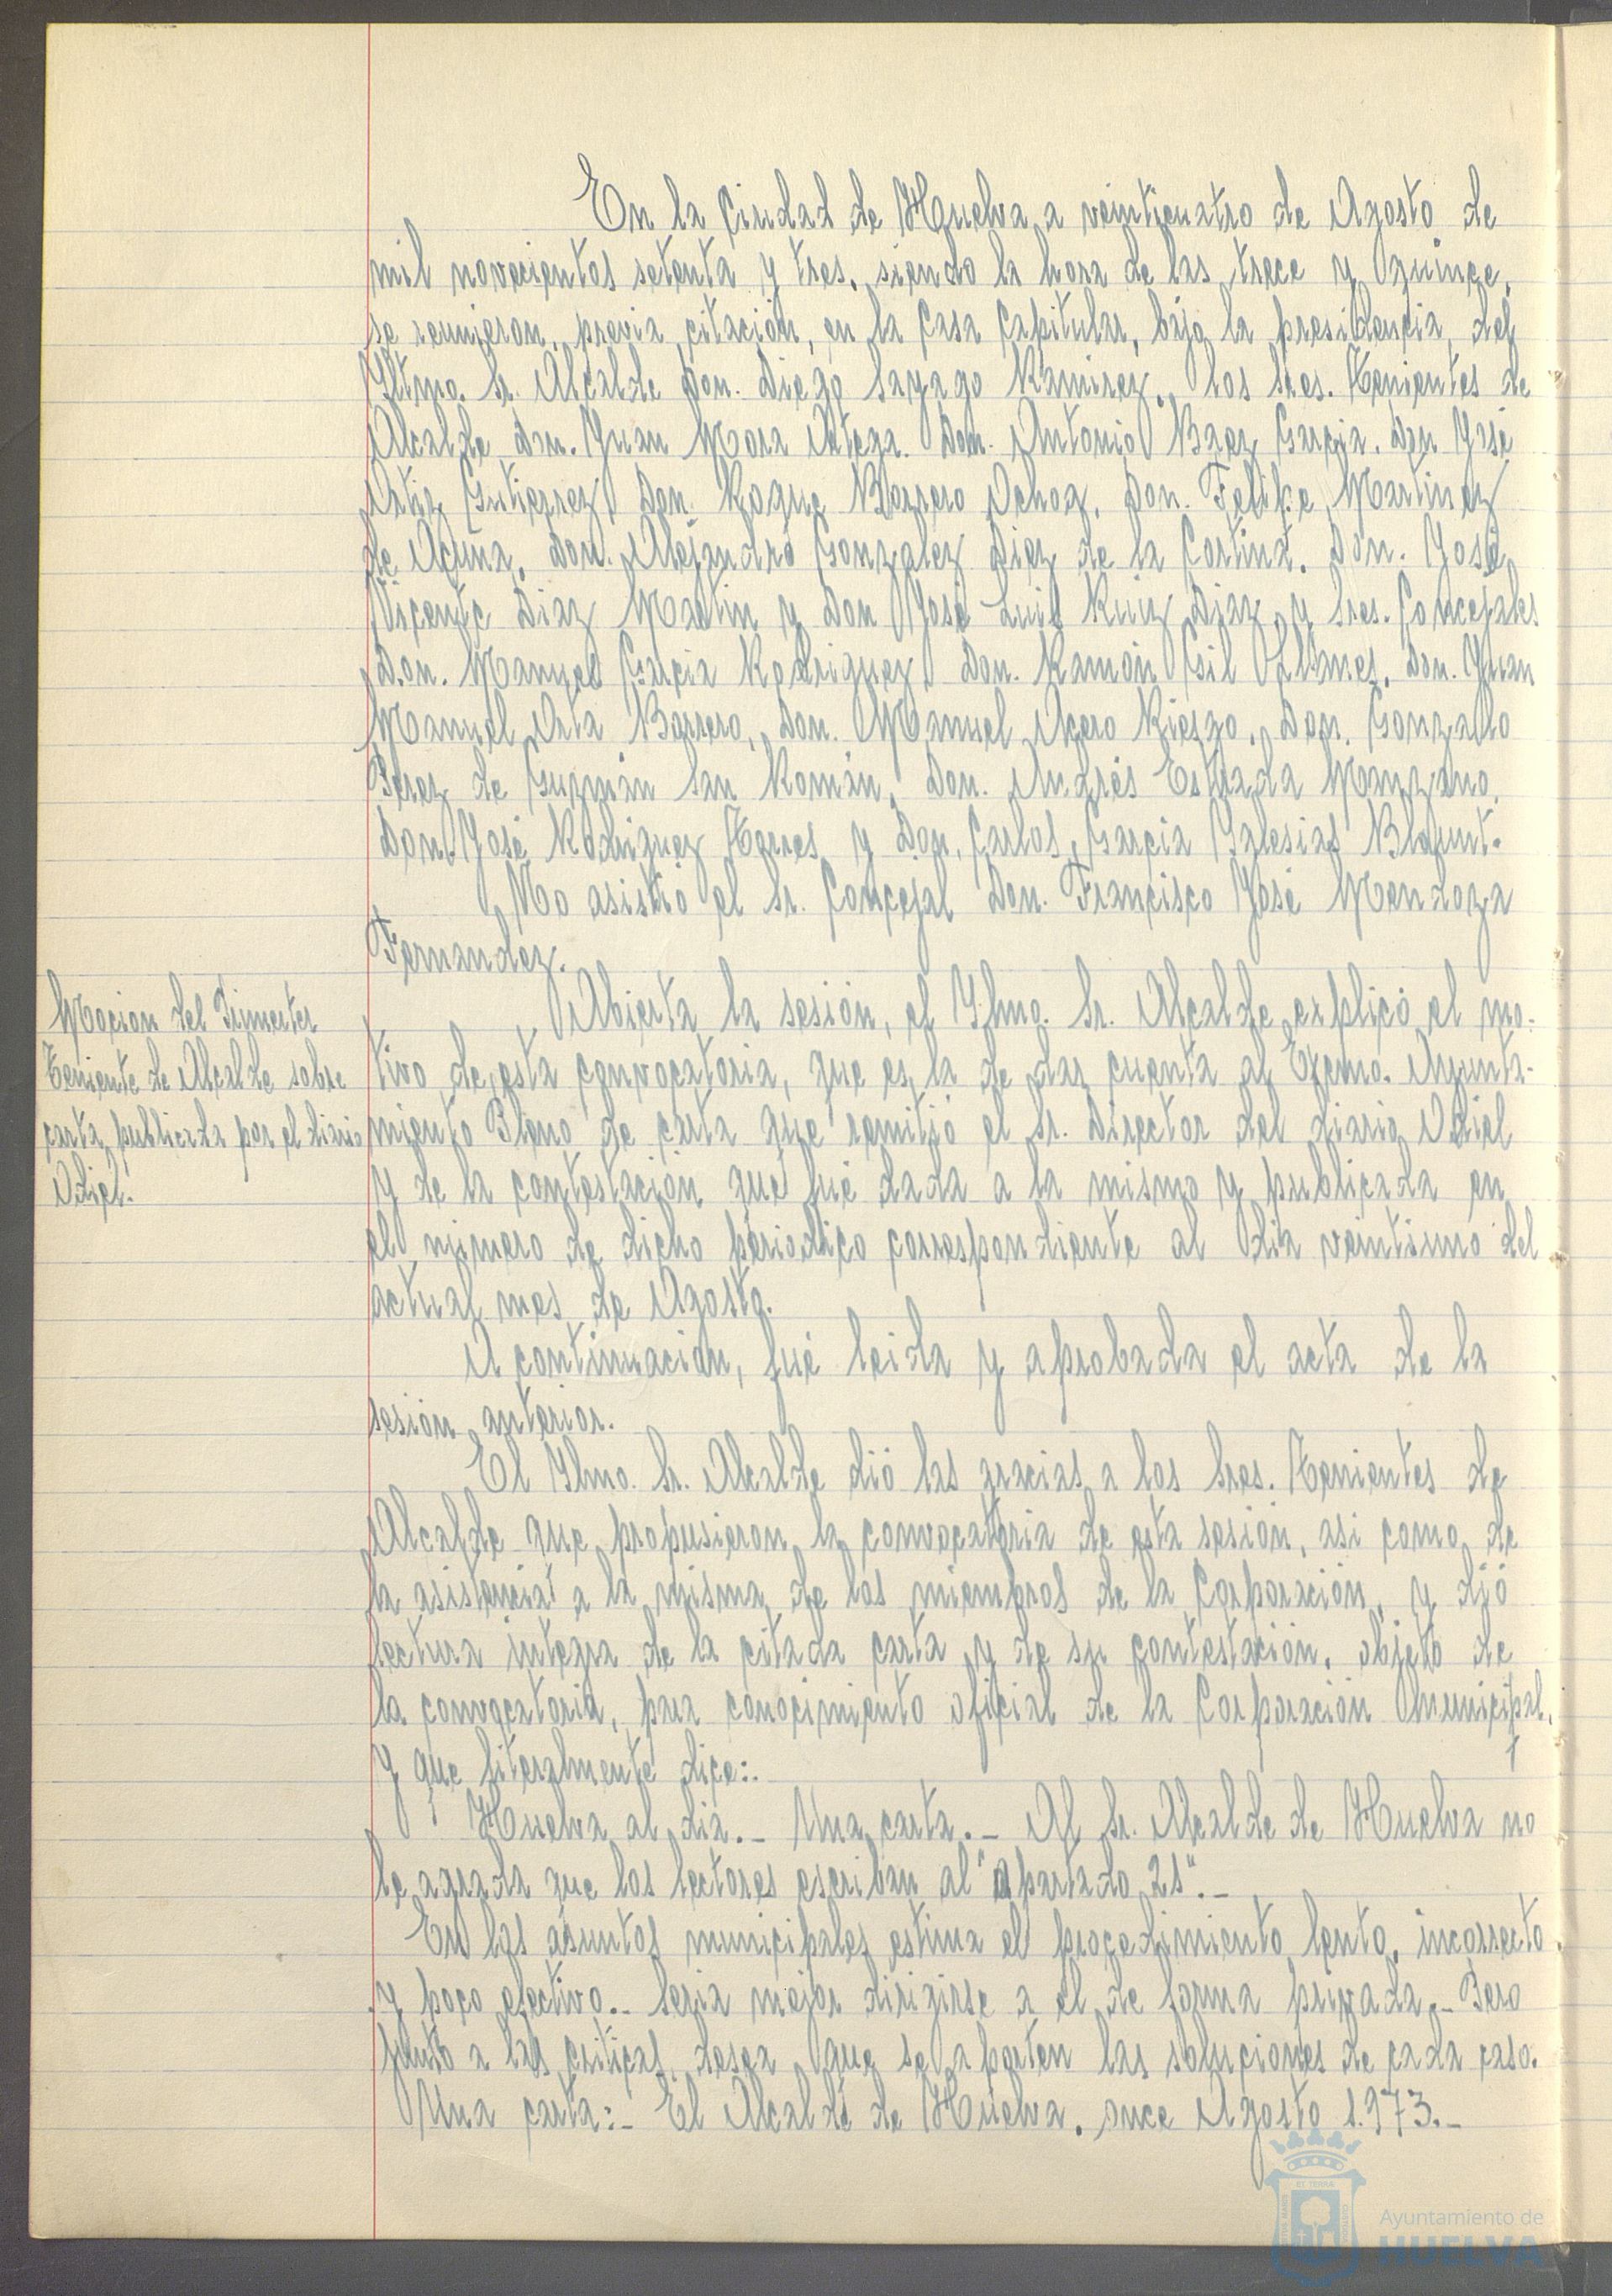 En la Ciudad de Huelva a veinticuatro de Agosto de
mil novecientos setenta y tres, siendo la hora de las trece y quince,
se reunieron, previa citación, en la Casa Capitular, bajo la presidencia del
Iltmo. Sr. Alcalde Don. Diego Sayago Ramirez, los Sres. Tenientes de
Alcalde Don. Juan Mora Ortega. Don. Antonio Baez Garcia. Don José
Ortiz Gutierrez, Don. Roque Barrero Ochoa, Don. Felipe Martinez
de Acuña, Don. Alejandro Gonzalez Diez de la Cortina. Don. José
Vicente Diaz Martin y Don José Luis Ruiz Diaz, y Sres. Concejales
Don. Manuel Garcia Rodriguez, Don. Ramón Gil Don. Juan
Manuel Orta Barrero, Don. Manuel Acero Riesgo, Don. Gonzalo
Perez de Guzmán San Román, Don. Andrés Estrada Manzano,
Don. José Rodriguez Torres y Don. Carlos Garcia Yglesias Blount.
No asistió el Sr. Concejal Don. Francisco José Mendoza
Fernandez.
Mocion del Primer
Teniente de Alcalde sobre
carta publicada por el diario
Odiel.
Abierta la sesión, el Ylmo. Sr. Alcalde explicó el mo-
tivo de esta convocatoria, que es la de dar cuenta al Excmo. Ayunta-
miento Pleno de carta que remitió el Sr. Director del diario Odiel
y de la contestación que fué dada a la mismo y publicada en
el número de dicho periodico correspondiente al dia veintiuno del
actual mes de Agosto.
A continuación, fué leida y aprobada el acta de la
sesión anterior.
El Ylmo. Sr. Alcalde dió las gracias a los Sres. Tenientes de
Alcalde que propusieron la convocatoria de esta sesión, asi como de
la asistencia a la misma de los miembros de la Corporación, y dió
lectura integra de la citada carta y de su contestación, objeto de
la convocatoria, para conocimiento oficial de la Corporación Municipal,
y que literalmente dice:.
Huelva al dia.- Una carta.- Al Sr. Alcalde de Huelva no
le agrada que los lectores escriban al "Apartado 21".-
En los asuntos municipales estima el procedimiento lento, incorrecto
y poco efectivo.- Seria mejor dirigirse a el de forma privada.- Pero
junto a las criticas desea que se aporten las soluciones de cada caso.
Una carta:- El Alcalde de Huelva, once Agosto 1.973.-
Ayuntamiento de
HUELVA